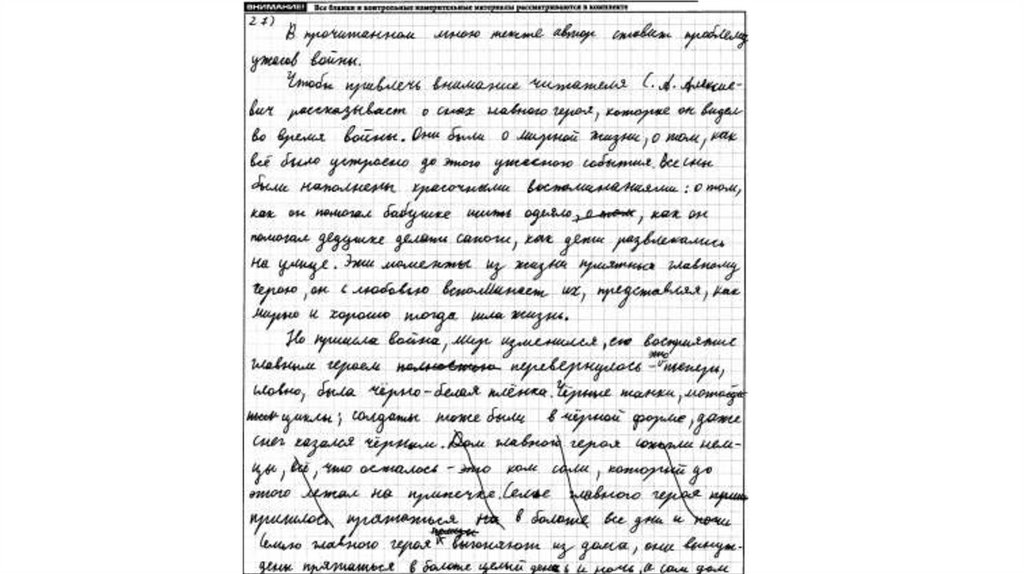 ВНИМАНИЕ! Все бланки и контрольные измерительные материалы рассматриваются в комплекте
27)
В прочитанном мною тексте автор ставит проблему
ужасов войны.
Чтобы привлечь внимание читателя С. А. Алексие-
вич рассказывает о снах главного героя, которые он видел
во время войны. Они были о мирной жизни, о том, как
всё было устроено до этого ужасного события. Все сны
были наполнены красочными воспоминаниями: о том,
как он помогал бабушке шить одеяло, о том, как он
помогал дедушке делать сапоги, как дети развлекались
на улице. Эти моменты из жизни приятны главному
герою, он с любовью вспоминает их, представляя, как
мирно и хорошо тогда шла жизнь.
Но пришла война, мир изменился, его восприятие
главным героем полностью перевернулось – это теперь,
словно, была чёрно-белая плёнка. Чёрные танки, мотоци
циклы; солдаты тоже были в чёрной форме, даже
снег казался чёрным. Дом главного героя сожгли нем-
цы, всё, что осталось – это ком соли, который до
этого лежал на припечке. Семье главного героя
пришлось прятаться на в болоте все дни и ночи
Семью главного героя выгоняют из дома, они вынуж-
дены прятаться в болоте целый день и ночь, а сам дом